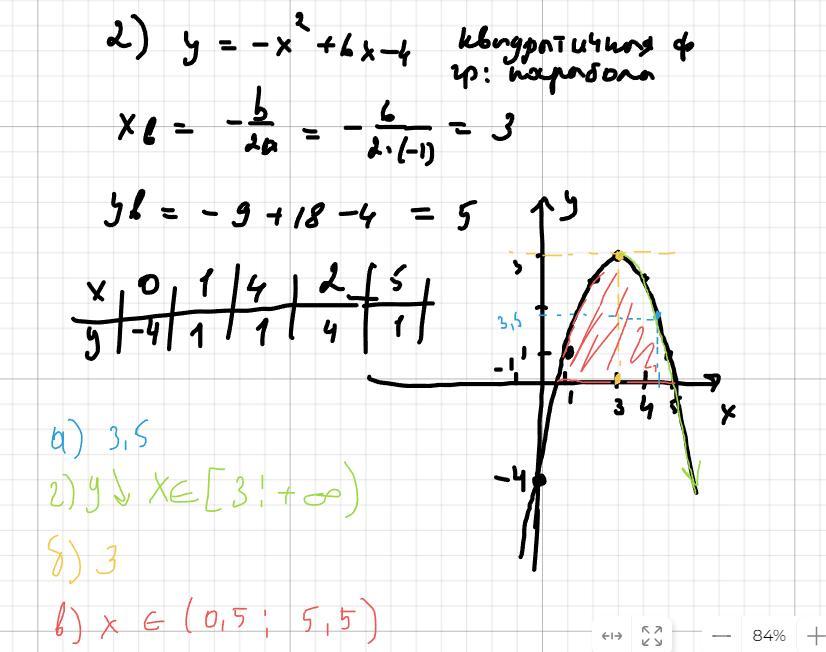 2) y = -x² + 6x - 4 квадратичная ф
гр: парабола
xв = - b/2a = - 6/2·(-1) = 3
yв = - 9 + 18 - 4 = 5
x | 0 | 1 | 4 | 2 | 5
y | -4 | 1 | 1 | 4 | 1
y
5
3,5
1
-1
1 3 4 5
x
-4
а) 3,5
г) y↓ x∈[3; +∞)
б) 3
в) x ∈ (0,5; 5,5)
84%